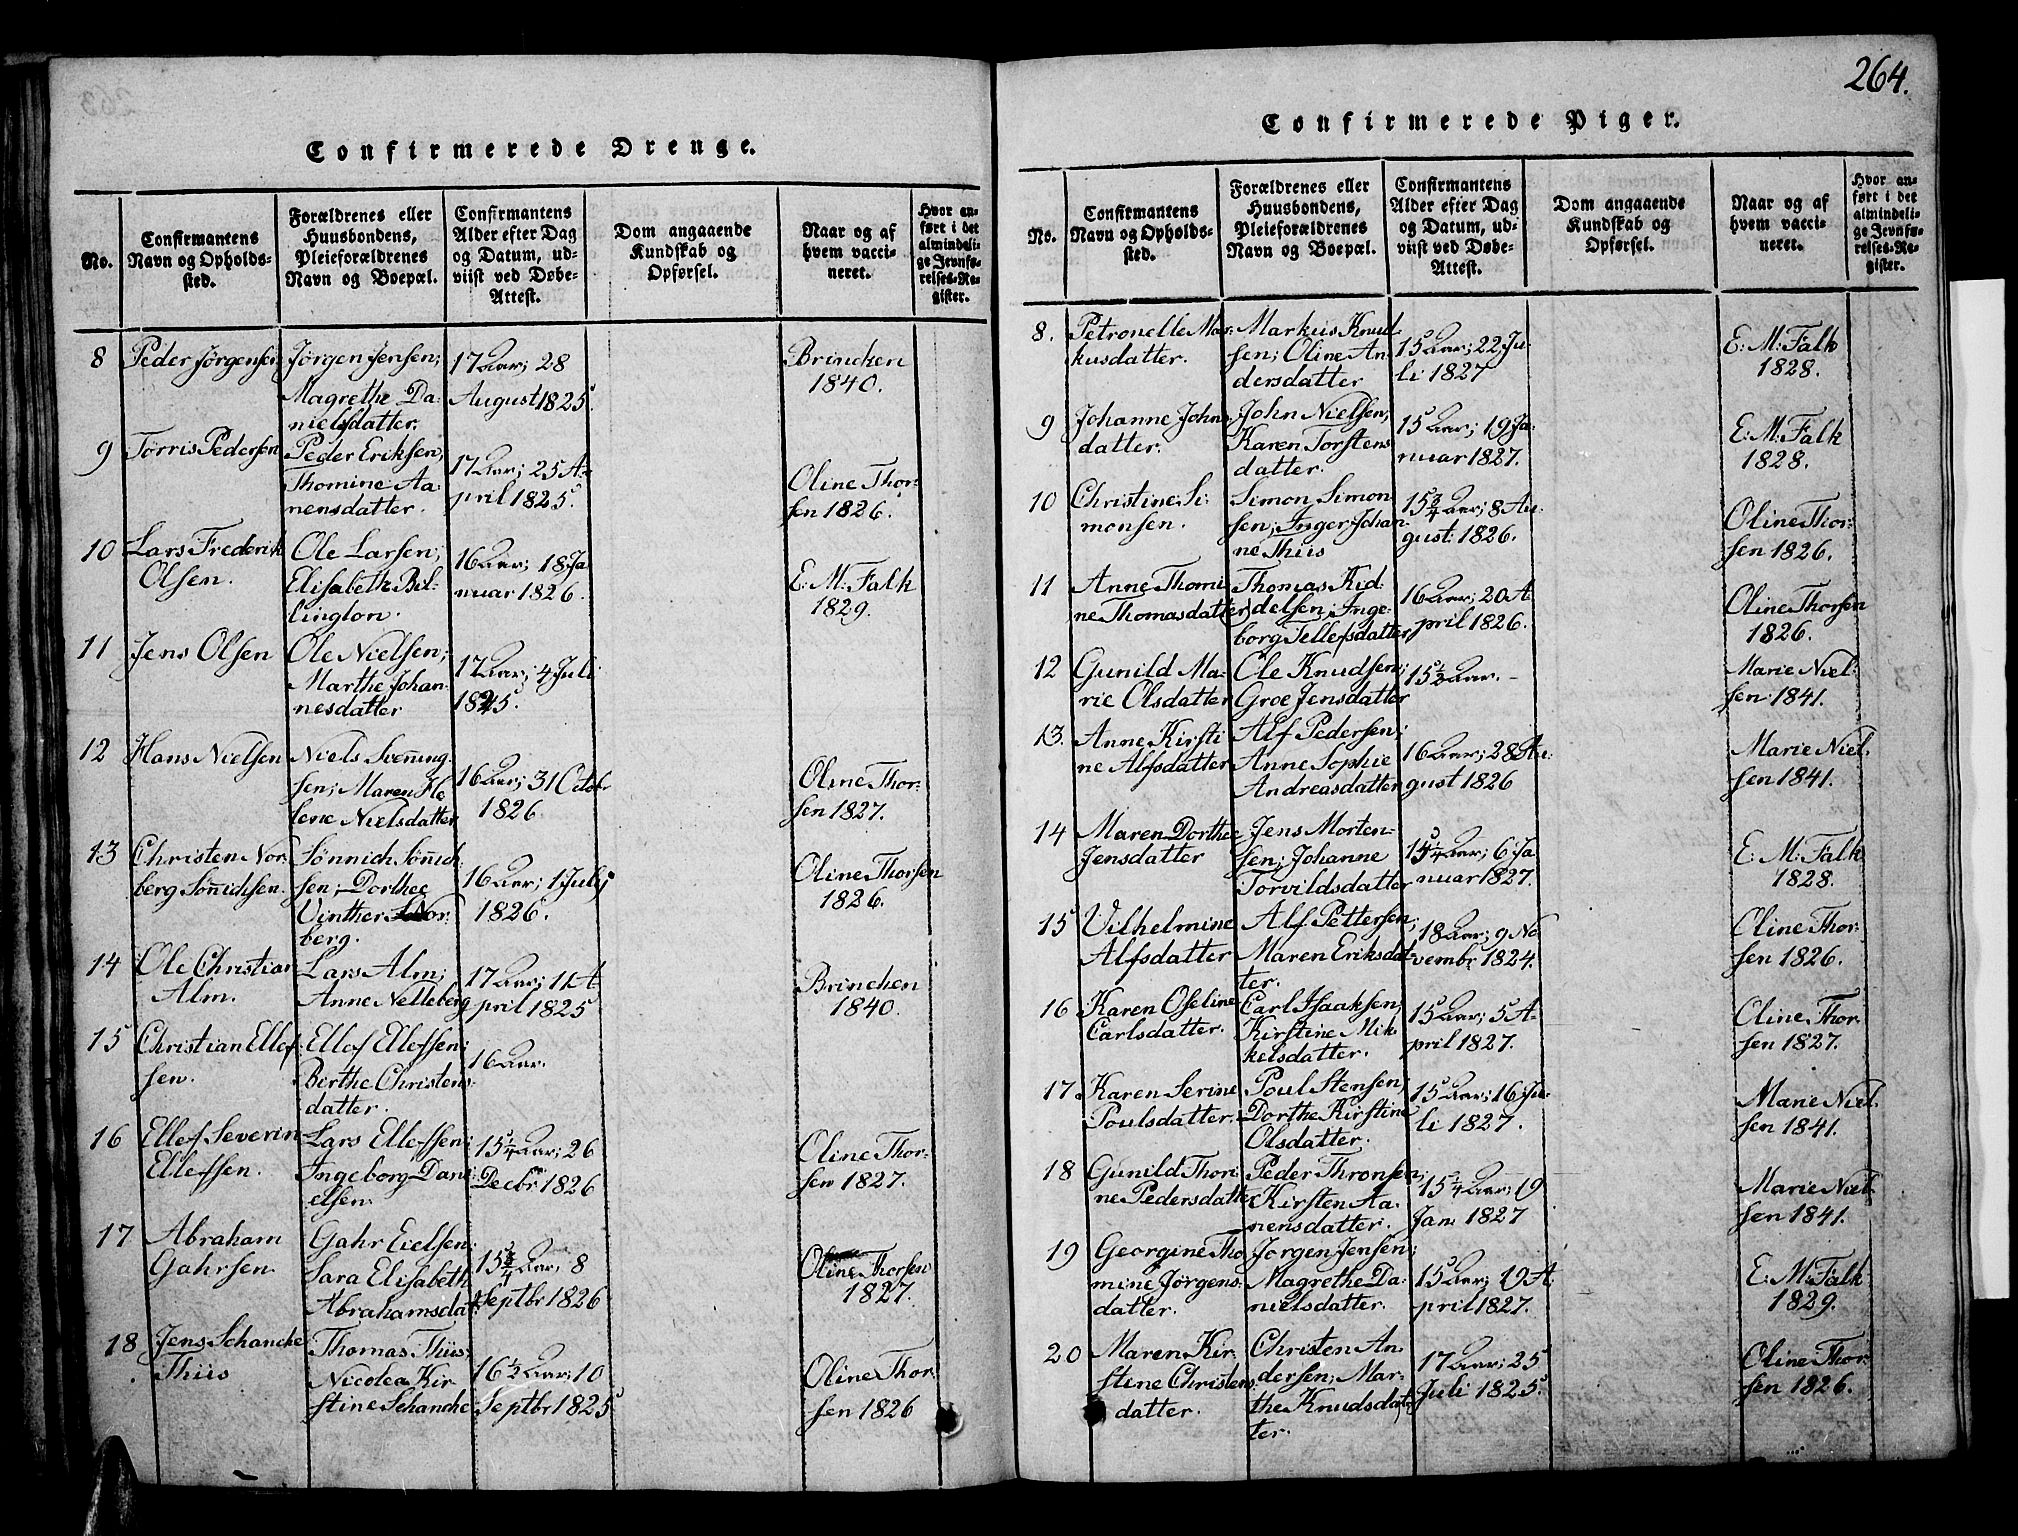 264.
Confirmerede Drenge.
No.
Confirmantens
Navn og Opholds-
sted.
Forældrenes eller
Huusbondens,
Pleieforældrenes
Navn og Boepæl.
Confirmantens
Alder efter Dag
og Datum, ud-
viist ved Døbe-
Attest.
Dom angaaende
Kundskab og
Opførsel.
Naar og af
hvem vacci-
neret.
Hvor an-
ført i det
almindeli-
ge Jevnfø-
relses-Re-
gister.
8
Peder Jørgensen
Jørgen Jensen;
Magrethe Da-
nielsdatter.
17 Aar; 28
August 1825.
Brincken
1840.
9
Tørris Pedersen
Peder Eriksen,
Thomine Aa-
nensdatter.
17 Aar; 25 A-
pril 1825.
Oline Thor-
sen 1826.
10
Lars Frederik
Olsen.
Ole Larsen;
Elisabeth Bil-
lington.
16 Aar; 18 Ja
nuar 1826.
E: M: Falk
1829.
11
Jens Olsen
Ole Nielsen;
Marthe Johan-
nesdatter
17 Aar; 4 Juli
1825.
12
Hans Nielsen
Niels Svening-
sen; Maren He
lene Nielsdatter
16 Aar; 31 Octobr
1826
Oline Thor-
sen 1827.
13
Christen Nor-
berg Sønichsen.
Sønnich Sønich-
sen; Dorthee
Vinther Nor-
berg.
16 Aar; 1 July
1826.
Oline Thorsen
1826.
14
Ole Christian
Alm.
Lars Alm;
Anne Nelleberg
17 Aar; 11 A
pril 1825
Brincken
1840.
15
Christian Ellef-
sen.
Ellef Ellefsen;
Birthe Christens-
datter.
16 Aar.
16
Ellef Severin
Ellefsen.
Lars Ellefsen;
Ingeborg Dani-
elsen
15 1/4 Aar; 26
Decbr 1826
Oline Thor-
sen 1827.
17
Abraham
Gahrsen
Gahr Eielsen;
Sara Elisabeth
Abrahamsdat
15 3/4 Aar; 8
Septbr 1826
Oline Thorsen
1827.
18
Jens Schancke
Thiis
Thomas Thiis;
Nicolea Kir
stine Schancke
16 1/2 Aar; 10
Septbr 1825
Oline Thor
sen 1826
Confirmerede Piger.
No.
Confirmantens
Navn og Opholds-
sted.
Forældrenes eller
Huusbondens,
Pleieforældrenes
Navn og Boepæl.
Confirmantens
Alder efter Dag
og Datum, ud-
viist ved Døbe-
Attest.
Dom angaaende
Kundskab og
Opførsel.
Naar og af
hvem vacci-
neret.
Hvor an-
ført i det
almindeli-
ge Jevnfø-
relses-Re-
gister.
8.
Petronelle Mar-
kusdatter.
Markus Knud-
sen; Oline An
dersdatter
15 Aar; 22 Ju-
li 1827
E: M: Falk
1828.
9
Johanne Johns
datter.
John Nielsen;
Karen Torstens
datter.
15 Aar; 19 Ja-
nuar 1827.
E: M: Falk
1828.
10
Christine Si-
monsen.
Simon Simon
sen; Inger Johan-
ne Thiis
15 3/4 Aar; 8 Au-
gust: 1826.
Oline Thor-
sen 1826.
11
Anne Thomi
ne Thomasdatter
Thomas Kid
delsen; Inge-
borg Tellefsdatter
16 Aar; 20 A
pril 1826.
Oline Thorsen
1826.
12
Gunild Ma-
rie Olsdatter
Ole Knudsen;
Groe Jensdatter
15 1/2 Aar. -
Marie Niel-
sen 1841.
13.
Anne Kirsti
ne Alfsdatter
Alf Pedersen;
Anne Sophie
Andreasdatter
16 Aar; 28 Au-
gust 1826
Marie Niel.
sen 1841.
14
Maren Dorthee
Jensdatter
Jens Morten-
sen; Johanne
Torvildsdatter
15 1/4 Aar; 6 Ja
nuar 1827.
E: M: Falk
1828.
15
Vilhelmine
Alfsdatter
Alf Pettersen;
Maren Eriksdat
ter.
18 Aar; 9 No
vembr 1824.
Oline Thor-
sen 1826.
16
Karen Oseline
Carlsdatter.
Carl Isaaksen;
Kirstine Mik
kelsdatter.
15 Aar; 5 A-
pril 1827.
Oline Thor-
sen 1827.
17
Karen Serine
Poulsdatter.
Poul Stensen;
Dorthe Kirstine
Olsdatter.
15 Aar; 16 Ju-
li 1827.
Marie Niel.
sen 1841.
18
Gunild Thori-
ne Pedersdatter
Peder Thronsen;
Kirsten Aa-
nensdatter.
15 1/4 Aar; 19
Jan. 1827
Marie Niel-
sen 1841.
19
Georgine Tho
mine Jørgens-
datter.
Jørgen Jensen;
Magrethe Da-
nielsdatter.
15 Aar; 19 A
pril 1827.
E: M: Falk
1829.
20
Maren Kir-
stine Christens
datter.
Christen An
dersen; Mar-
the Knudsdat
ter.
17 Aar; 25
Juli 1825.
Oline Thor-
sen 1826.